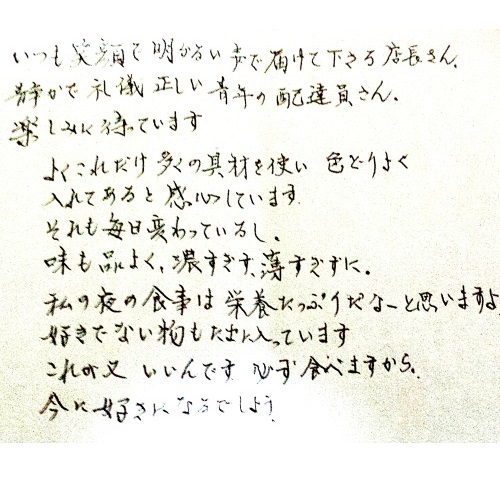 いつも笑顔で明かるい声で届けて下さる店長さん、
静かで礼儀正しい青年の配達員さん。
楽しみに待っています
よくこれだけ多くの具材を使い 色どりよく
入れてあると感心しています
それも毎日変わっているし。
味も品よく、濃すぎず、薄すぎずに。
私の夜の食事は栄養たっぷりだなーと思いますよ
好きでない物もたまに入っています
これが又 いいんです 必ず食べますから。
今に好きになるでしょう